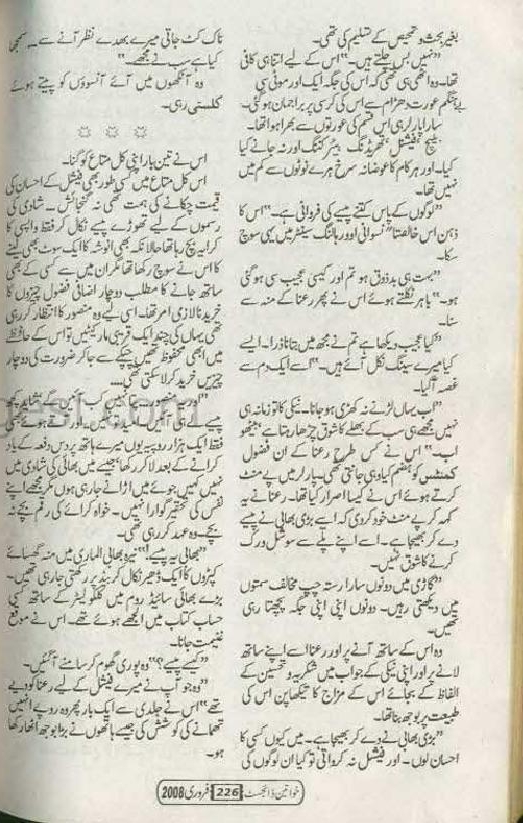 بغیر بحث و تمحیص کے تسلیم کی تھی۔
"نہیں بس چلتے ہیں۔" اس کے لیے اتنا ہی کافی
تھا۔ وہ اٹھی ہی تھی کہ اس کی جگہ ایک اور موٹی سی
بے ہنگم عورت دھڑام سے اس کی کرسی پر براجمان ہوگئی۔
سارا پارلر ہی اس قسم کی عورتوں سے بھرا ہوا تھا۔
بلیچ، فیشل، تھریڈنگ، ہیئر کٹنگ اور نہ جانے کیا
کیا۔ اور ہر کام کا عوضانہ سرخ ہرے نوٹوں سے کم میں
نہیں تھا۔
"لوگوں کے پاس کتنے پیسے کی فراوانی ہے۔" اس کا
ذہن اس خالصتاً نسوانی اوور ہالنگ سینٹر میں یہی سوچ
سکا۔
"بہت ہی بدذوق ہو تم اور کیسی عجیب سی ہوگئی
ہو۔" باہر نکلتے ہوئے اس نے پھر رعنا کے منہ سے
سنا۔
"کیا عجیب دیکھا ہے تم نے مجھ میں بتانا ذرا۔ ایسے
کیا میرے سینگ نکل آئے ہیں۔" اسے ایک دم سے
غصہ آگیا۔
"اب یہاں لڑنے نہ کھڑی ہو جانا۔ نیکی کا تو زمانہ ہی
نہیں مجھے ہی سب کے بھلے کا شوق چڑھا رہتا ہے بیٹھو
اب۔" اس نے کس طرح رعنا کے ان فضول
کمنٹس کو ہضم کیا وہ ہی جانتی تھی۔ پارلر میں پے منٹ
کرتے ہوئے اس نے کیسا اصرار کیا تھا۔ رعنا نے یہ
کہہ کر پے منٹ خود کر دی کہ اسے بڑی بھابی نے پیسے
دے کر بھیجا ہے۔ اسے اپنے پلے سے سوشل ورک
کرنے کا شوق نہیں۔
"گاڑی میں دونوں سارا رستہ چپ مخالف سمتوں
میں دیکھتی رہیں۔ دونوں اپنی اپنی جگہ پچھتا رہی
تھیں۔
وہ اس کے ساتھ آنے پر اور رعنا اسے اپنے ساتھ
لانے پر اور اپنی نیکی کے جواب میں شکریہ و تحسین کے
الفاظ کے بجائے اس کے مزاج کا تیکھا پن اس کی
طبیعت پر بوجھ بنا تھا۔
"بڑی بھابی نے دے کر بھیجا ہے۔ میں کیوں کسی کا
احسان لوں۔ اور فیشل نہ کرواتی تو کیا ان لوگوں کی
ناک کٹ جاتی میرے بھدے نظر آنے سے۔ سمجھا
کیا ہے سب نے مجھے۔"
وہ آنکھوں میں آئے آنسوؤں کو پیتے ہوئے
کلستی رہی۔
☼ ☼ ☼
اس نے تین بار اپنی کل متاع کو گنا۔
اس کل متاع میں کسی طور بھی فیشل کے احسان کی
قیمت چکانے کی ہمت تھی نہ گنجائش۔ شادی کی
رسموں کے لیے تھوڑے پیسے نکال کر فقط واپسی کا
کرایہ بچ رہا تھا حالانکہ ابھی انوشہ کا ایک سوٹ بھی لینے
کا اس نے سوچ رکھا تھا مگر ان میں سے کسی کے بھی
ساتھ جانے کا مطلب دو چار اضافی فضول چیزوں کا
خریدنا لازمی امر تھا۔ اسی لیے وہ منصور کا انتظار کر رہی
تھی یہاں کی چند ایک قریبی مارکیٹیں تو اس کے حافظے
میں ابھی محفوظ تھیں چپکے سے جا کر ضرورت کی دو چار
چیزیں خرید کر لا سکتی تھی....
منصور پتا نہیں کب آئیں گے
پیسے لے ہی آئیں اور آتے ہوئے بھی
فقط ایک ہزار روپیہ یوں میرے ہاتھ پر دس دفعہ کے یاد
کرانے کے بعد لا کر رکھا جیسے میں بھائی کی شادی میں
نہیں کہیں جوئے میں اڑانے جا رہی ہوں مگر مجھے اپنے
نفس کی تحقیر گوارا نہیں۔ خواہ کرائے کی رقم بچے نہ
بچے۔ وہ عہد کر رہی تھی۔
"بھابی یہ پیسے!" نیرہ بھابی الماری میں منہ گھسائے
کپڑوں کا ایک ڈھیر نکال کر بیڈ پر رکھتی جا رہی تھیں۔
بڑے بھائی سائیڈ روم میں کلکولیٹر کے ساتھ کسی
حساب کتاب میں الجھے ہوئے تھے۔ اس نے موقع
غنیمت جانا۔
"کیسے پیسے؟" وہ پوری گھوم کر سامنے آگئیں۔
"وہ جو آپ نے میرے فیشل کے لیے رعنا کو دیے
تھے" اس نے جلدی سے ایک بار پھر وہ روپے انہیں
تھمانے کی کوشش کی جیسے ہاتھوں نے بڑا بوجھ اٹھا رکھا
ہو۔
خواتین ڈائجسٹ 226 فروری 2008
gest.com